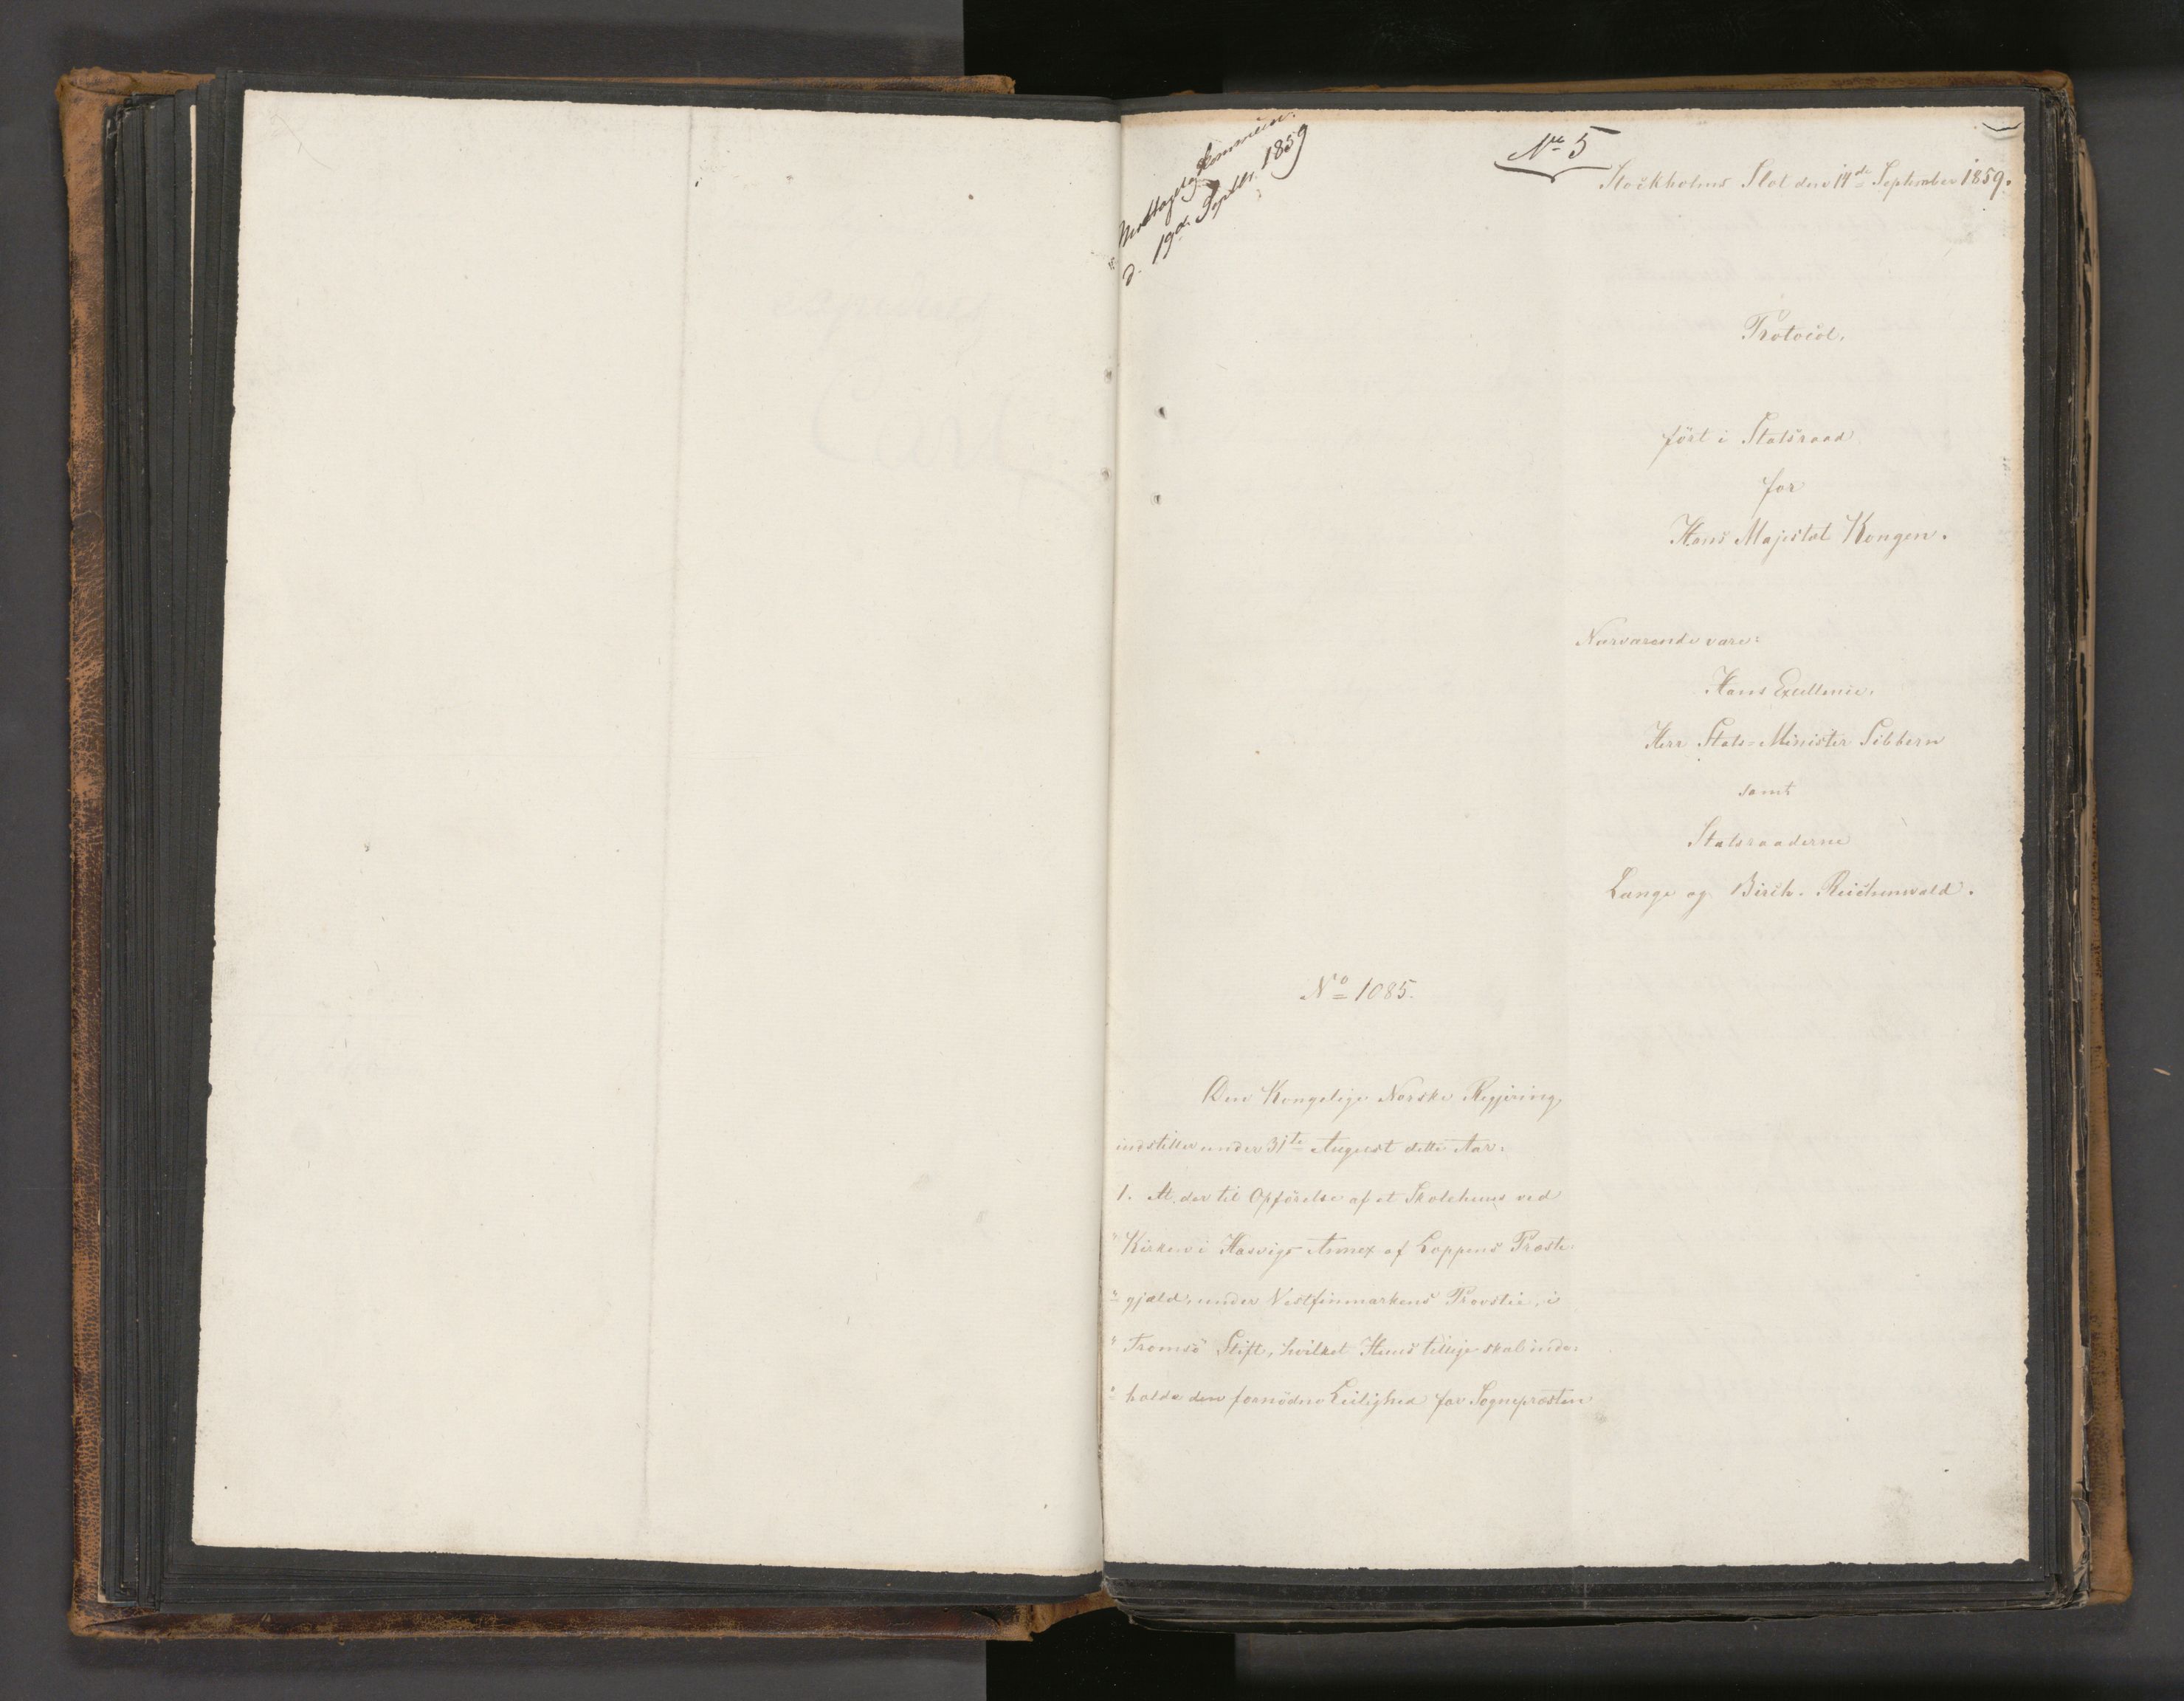 d. 19de Septbr. 1859
No 5
Stockholms Slot den 14de September 1859.
Protocol,
ført i Statsraad
for
Hans Majestæt Kongen.
Nærværende vare:
Hans Excellence,
Herr Stats-Minister Sibbern
samt
Statsraaderne
Lange og Birch-Reichenwald.
No 1085.
Den Kongelige Norske Regjering
indstiller under 31te August dette Aar:
1. At der til Opförelse af et Skolehuus ved
" Kirken i Hasvigs Annex af Loppens Præste-
" gjæld, under Vestfinmarkens Provstie, i
" Tromsö Stift, hvilket Huus tillige skal inde-
" holde den fornödne Leilighed for Sognepræsten